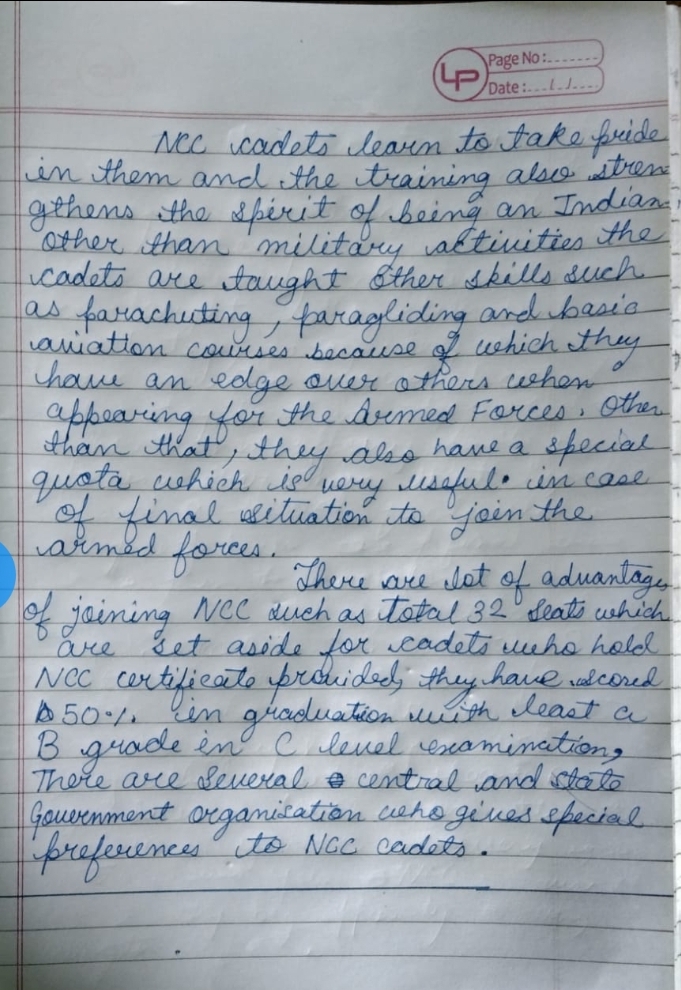 LP
Page No:.......
Date:..../..../....
NCC cadets learn to take pride
in them and the training also stren
gthens the spirit of being an Indian.
Other than military activities the
cadets are taught other skills such
as parachuting, paragliding and basic
aviation courses because of which they
have an edge over others when
appearing for the Armed Forces. Other
than that, they also have a special
quota which is very useful. in case
of final situation to join the
armed forces.
There are lot of advantages
of joining NCC such as total 32 seats which
are set aside for cadets who hold
NCC certificate provided, they have scored
50%. in graduation with least a
B grade in C level examination,
There are several central and state
Government organisation who gives special
preferences to NCC cadets.